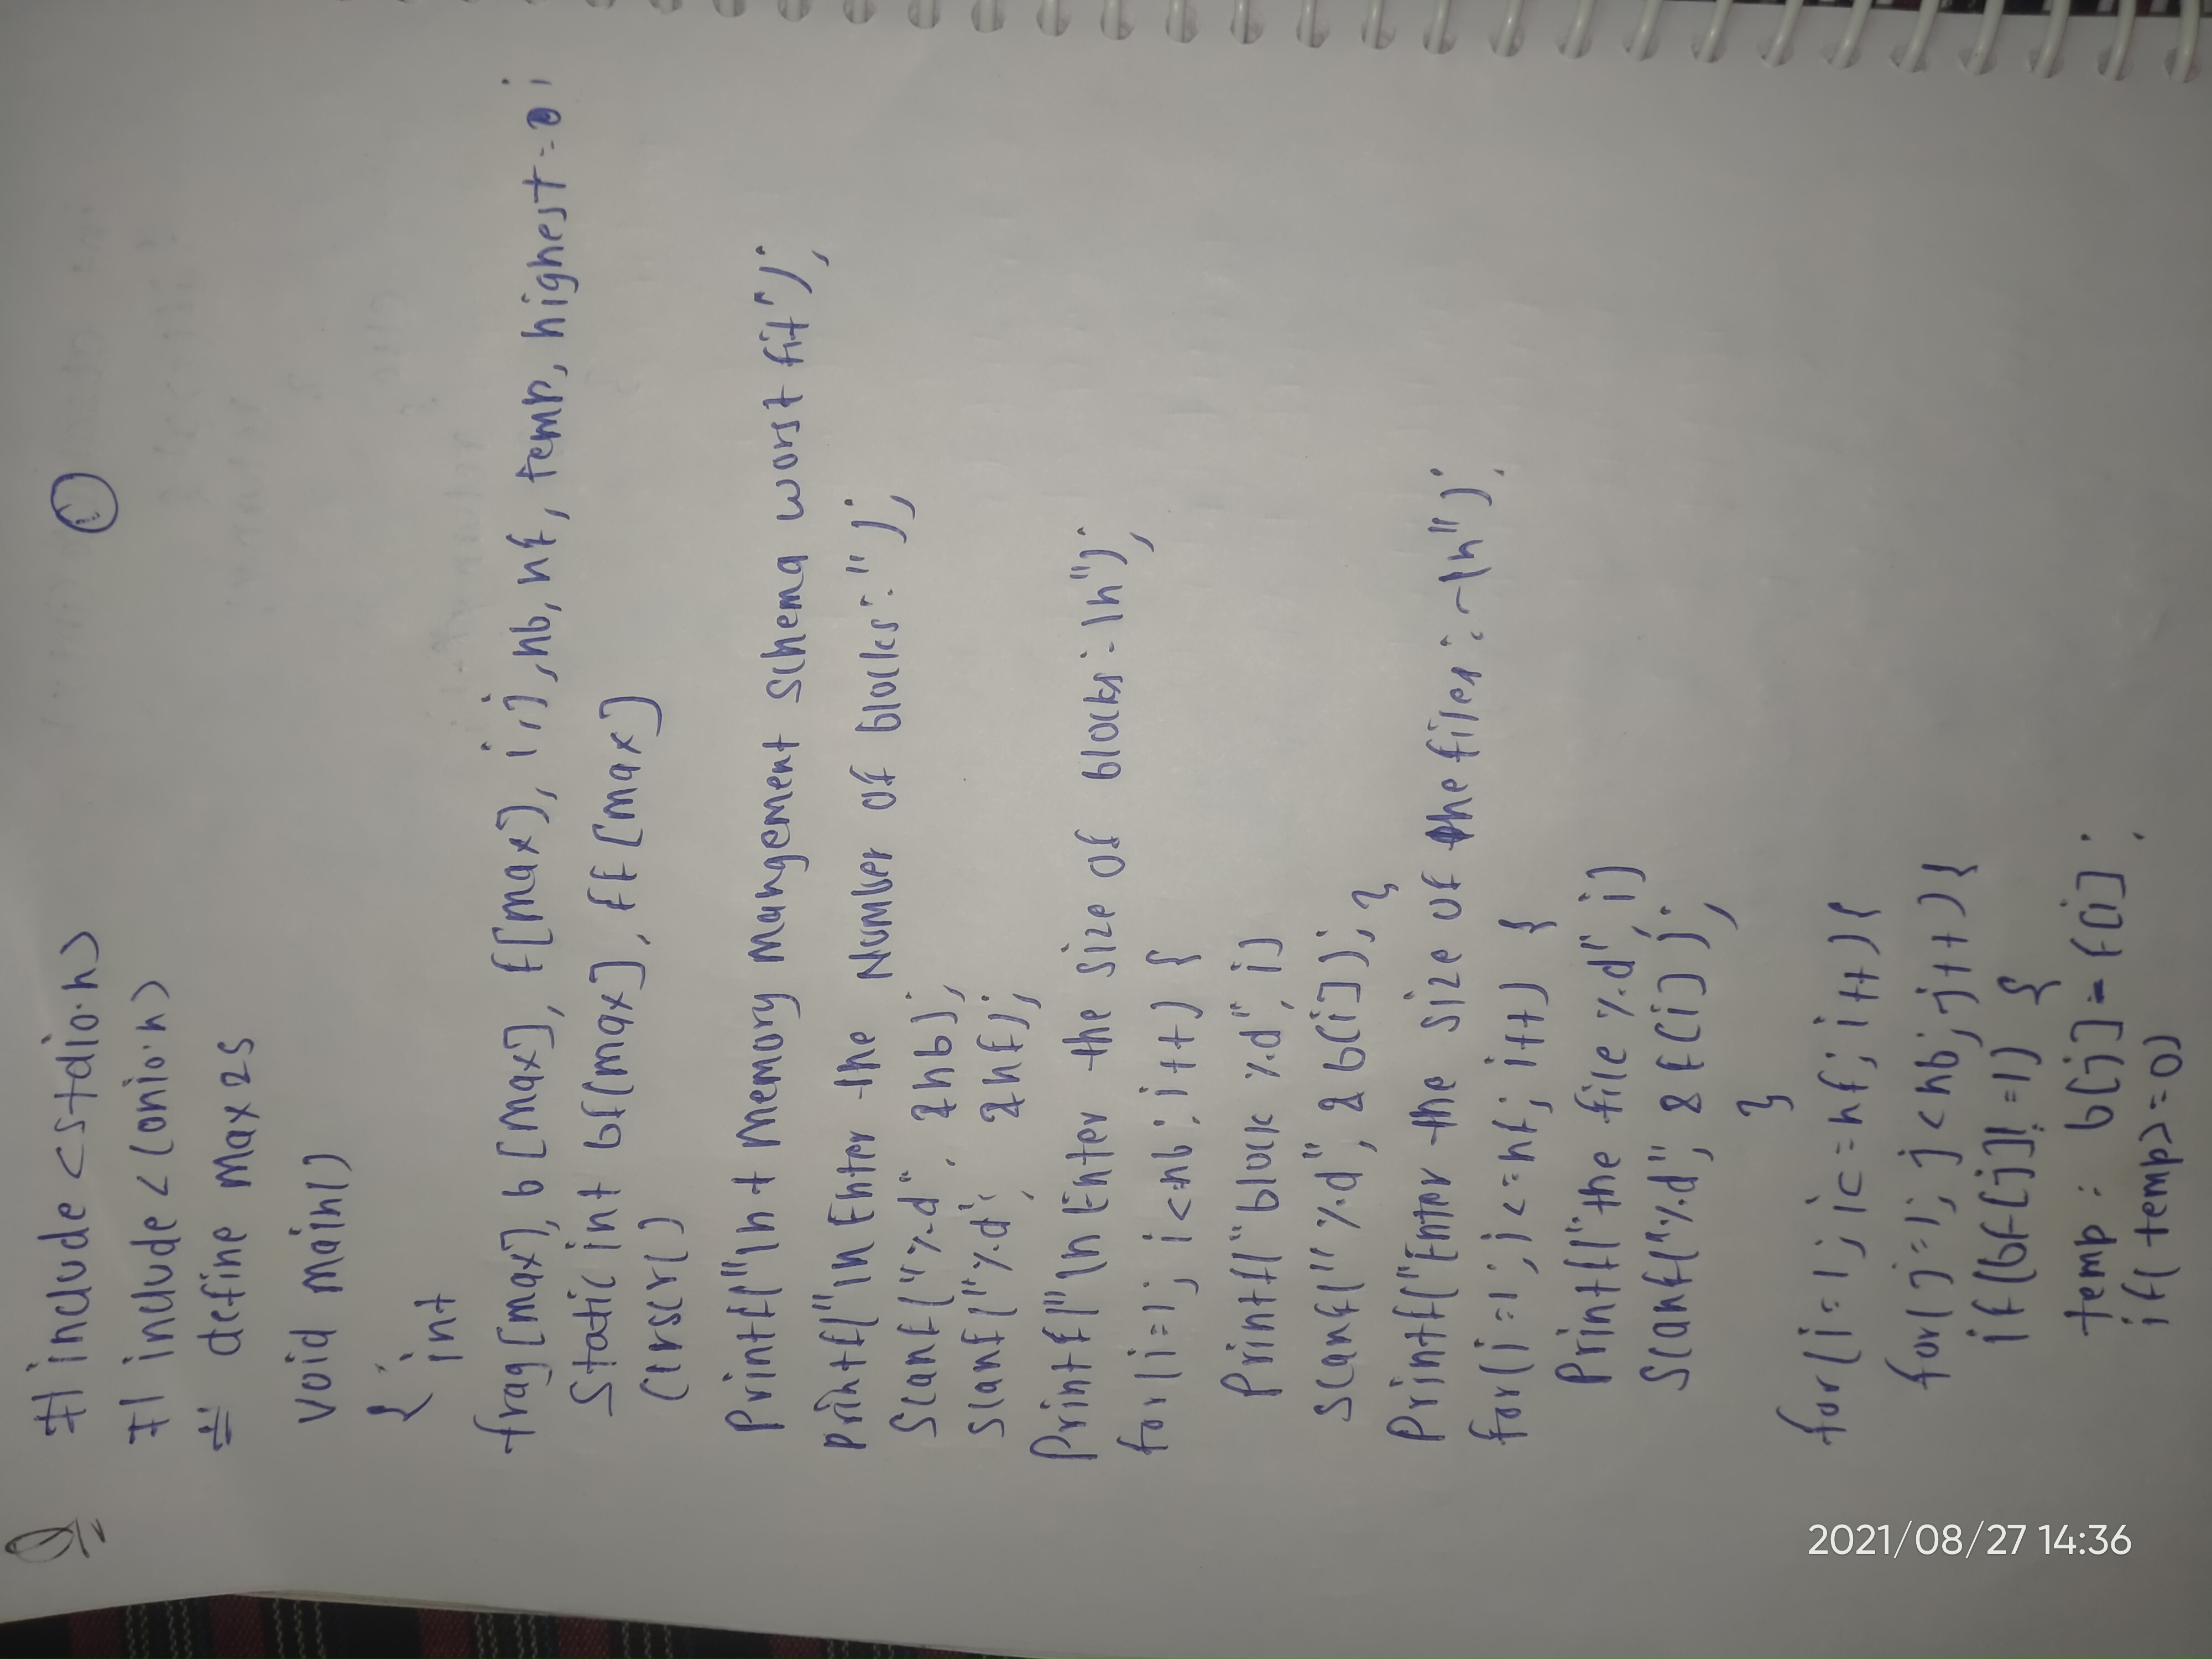 ①
#include <stdio.h>
#include <conio.h>
# define max 25
void main()
{
int
frag[max], b[max], f[max], i, j, nb, nf, temp, highest=0;
Static int bf[max], ff[max]
clrscr()
Printf("\n\t Memory mangement Schema worst fit");
printf("\n Enter the Number of blocks:");
Scanf("%d", &nb);
scanf("%d", &nf);
Printf("\n Enter the size of blocks:\n");
for(i=1; i<nb; i++) {
Printf("block %d", i)
scanf("%d", & b[i]); }
Printf("Enter the size of the files:-\n");
for(i=1; i<=nf; i++) {
Printf("the file %d", i)
Scanf("%d", & f[i]);
}
for(i=1; i<=nf; i++) {
for(j=1; j<nb; j++) {
if(bf[j]!=1) {
temp : b[j]-f[i];
if(temp>=0)
2021/08/27 14:36